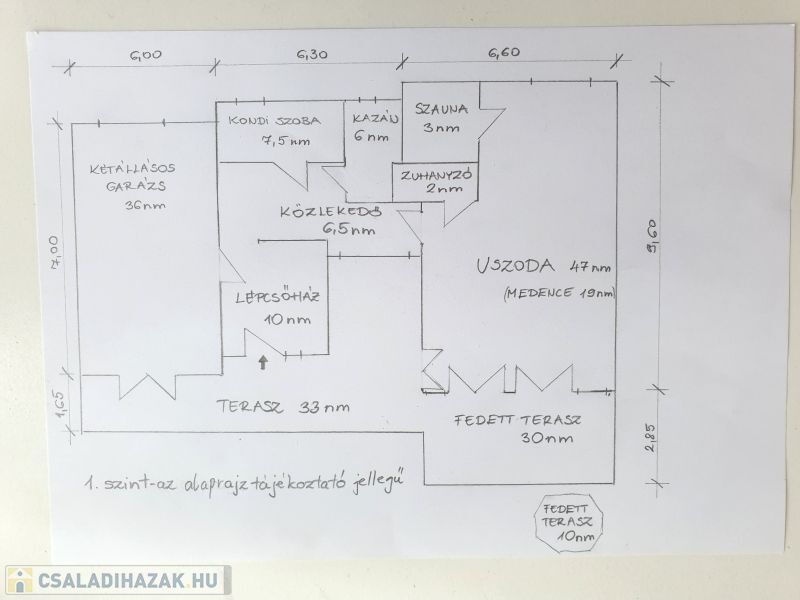 6,00
6,30
6,60
KONDI SZOBA
7,5nm
KAZÁN
6nm
SZAUNA
3nm
KÉTÁLLÁSOS
GARÁZS
36nm
ZUHANYZÓ
2nm
KÖZLEKEDŐ
6,5nm
7,00
9,60
USZODA 47nm
(MEDENCE 19nm)
LÉPCSŐHÁZ
10nm
1,65
TERASZ 33nm
FEDETT TERASZ
30nm
2,85
1. szint-az alaprajz tájékoztató jellegű
FEDETT
TERASZ
10nm
CSALADIHAZAK.HU